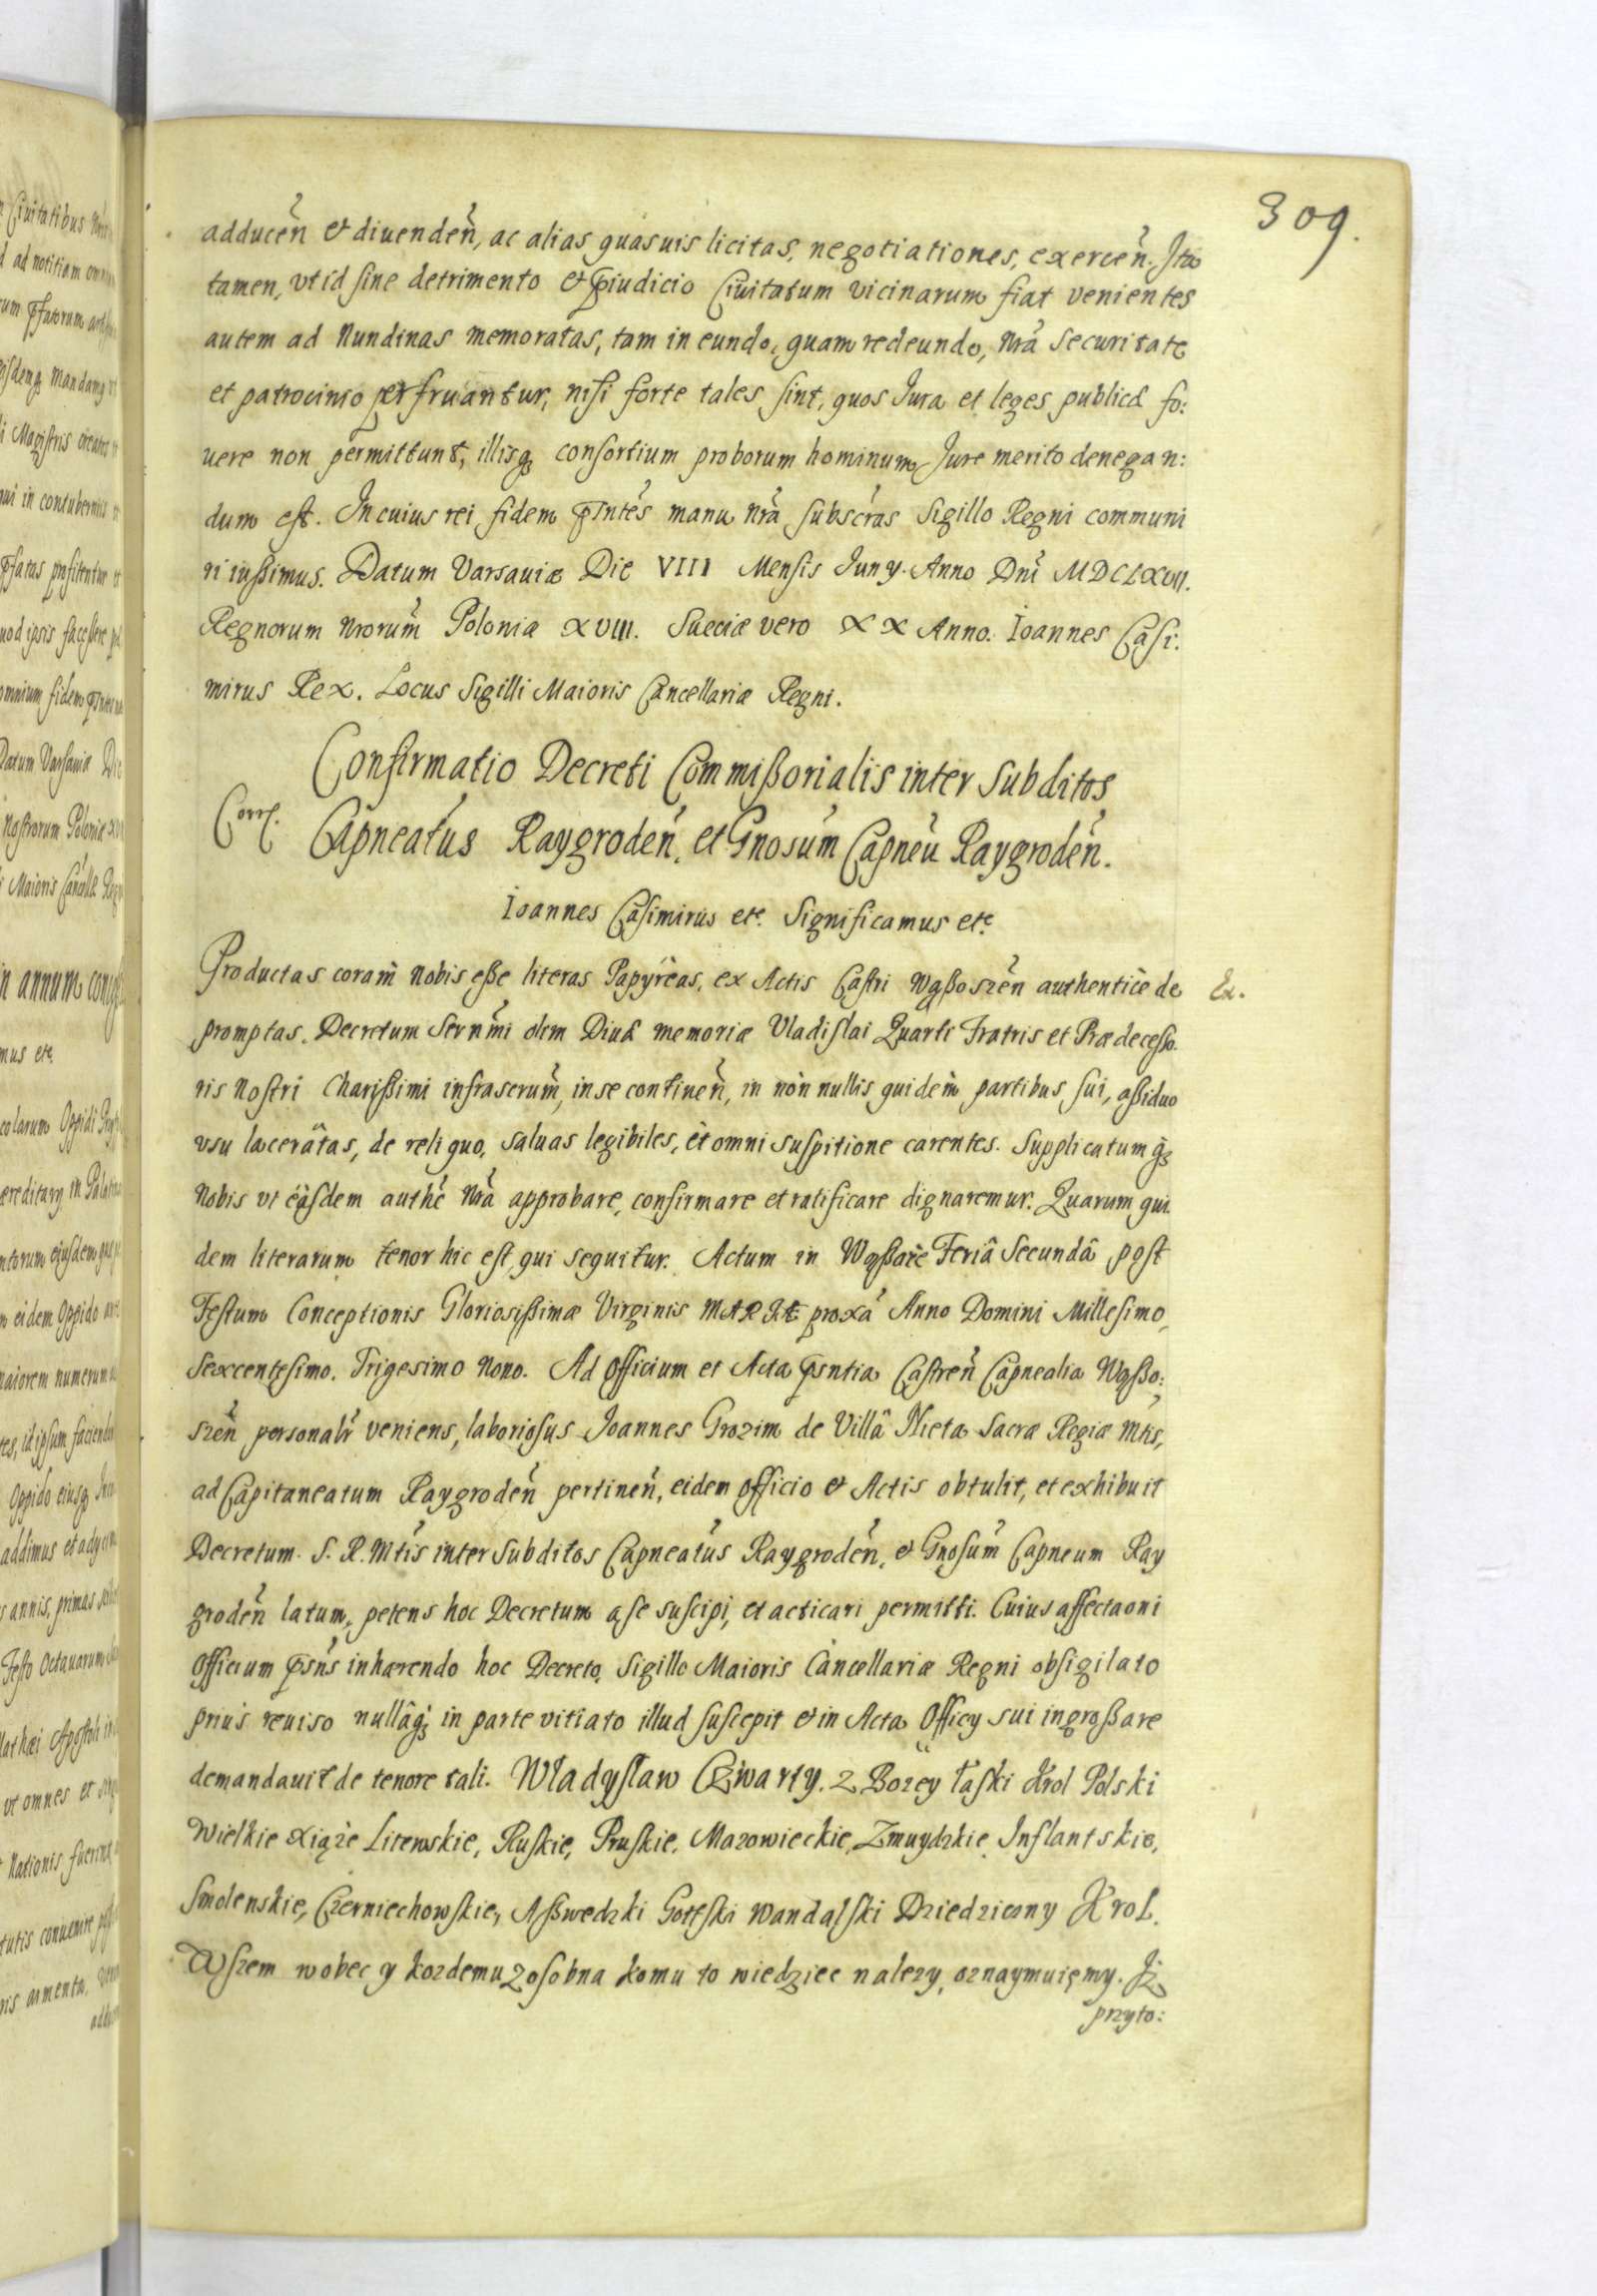 309.
adducen̄ et diuenden̄, ac alias quasuis licitas, negotiationes, exercen̄. Ita
tamen, vt id sine detrimento et p̄iudicio Ciuitatum vicinarum fiat venientes
autem ad Nundinas memoratas, tam in eundo, quam redeundo, nr̄a securitate
et patrocinio perfruantur, nisi forte tales sint, quos Jura et leges publicæ fo:
uere non permittunt, illisq₃ consortium proborum hominum Jure merito denegan:
dum est. In cuius rei fidem p̄ntes manu nr̄a subscr̄as Sigillo Regni communi
ri iussimus. Datum Varsauiæ Die VIII Mensis Juny. Anno Dn̄i MDCLXVII.
Regnorum nr̄orum Poloniæ XVIIII. Sueciæ vero XX Anno. Ioannes Casi:
mirus Rex. Locus Sigilli Maioris Cancellariæ Regni.
Confirmatio Decreti Commissorialis inter Subditos
Corr.
Capneatus Raygroden̄. et Gnosum Capneu Raygroden̄.
Ioannes Casimirus etc. Significamus etc.
Productas coram Nobis esse literas Papyreas, ex Actis Castri Wąssoszen̄ authenticè de
Ex.
promptas. Decretum Sernmi olim Diuæ memoriæ Vladislai Quarti Fratris et Prædecesso
ris Nostri Charissimi infrascrum̄, in se continen̄, in non nullis quidem partibus sui, assiduo
vsu laceratas, de reliquo, saluas legibiles, et omni suspitione carentes. Supplicatumq₃
Nobis vt easdem authē nr̄a approbare, confirmare et ratificare dignaremur. Quarum qui
dem literarum tenor hic est, qui sequitur. Actum in Wąssosze Feriâ Secundâ post
Festum Conceptionis Gloriosissimæ Virginis MARIÆ proxā Anno Domini Millesimo,
Sexcentesimo. Trigesimo Nono. Ad Officium et Acta p̄sntia Castren̄ Capnealia Wąsso:
szen̄ personalr̄ veniens, laboriosus Joannes Grozim de Villâ Nieta Sacræ Regiæ Mtis,
ad Capitaneatum Raygroden̄ pertinen̄, eidem Officio et Actis obtulit, et exhibuit
Decretum S. R. Mtis inter Subditos Capneatus Raygroden̄, et Gnosum Capneum Ray
groden̄ latum, petens hoc Decretum a se suscipi, et acticari permitti. Cuius affectaoni
Officium p̄sns inhærendo hoc Decreto, Sigillo Maioris Cancellariæ Regni obsigilato
prius reuiso nullâq₃ in parte vitiato illud suscepit et in Acta Officy sui ingrossare
demandauit de tenore tali. Władysław Czwarty. z Bozey łaski Krol Polski
Wielkie Xiąże Litewskie, Ruskie, Pruskie. Mazowieckie, Zmuydzkie Inflantskie,
Smolenskie, Czerniechowskie, A Szwedzki Gottski Wandalski Dziedziczny Krol.
Wszem wobec y kozdemu z osobna komu to wiedziec nalezy, oznaymuięmy. Iż
przyto: